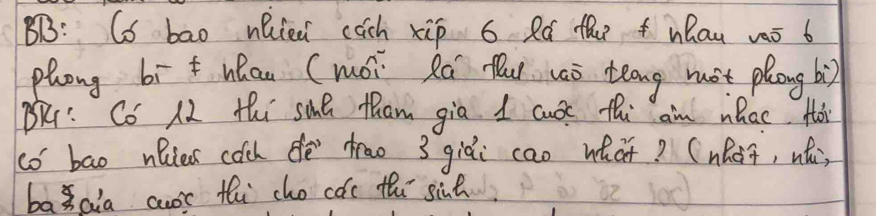 BT3: Có bao nhiêu cách xếp 6 lá thư ≠ nhau vaò 6
phong bì ≠ nhau (mỗi lá thư vaò trong một phong bì)
BT4: Có 12 thí sinh tham gia 1 cuộc thi âm nhạc. Hỏi
có bao nhiêu cách để trao 3 giải cao nhất? (nhất, nhì,
ba của cuộc thi cho các thí sinh.